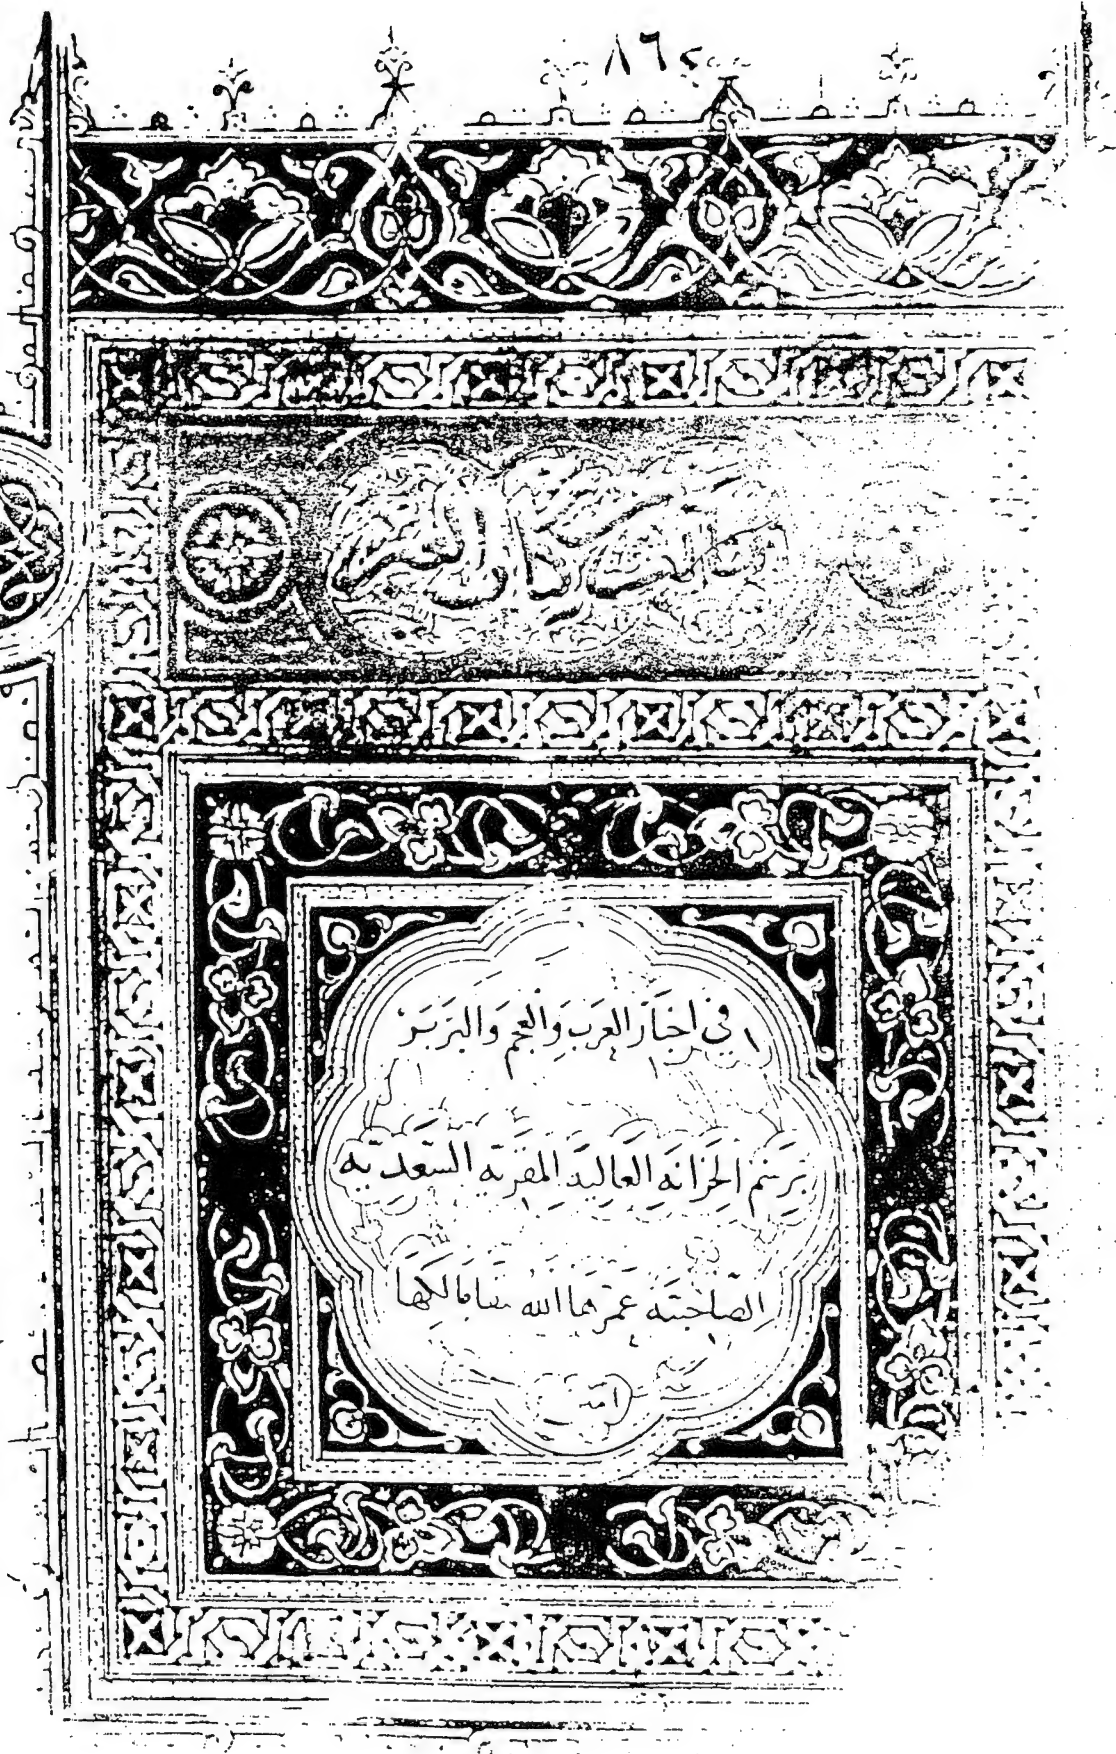 في اخبار العرب والعجم والبربر
برسم الخزانه العاليه المقريه السعديه
الصاحبيه عمرها الله ببقا مالكها
امين